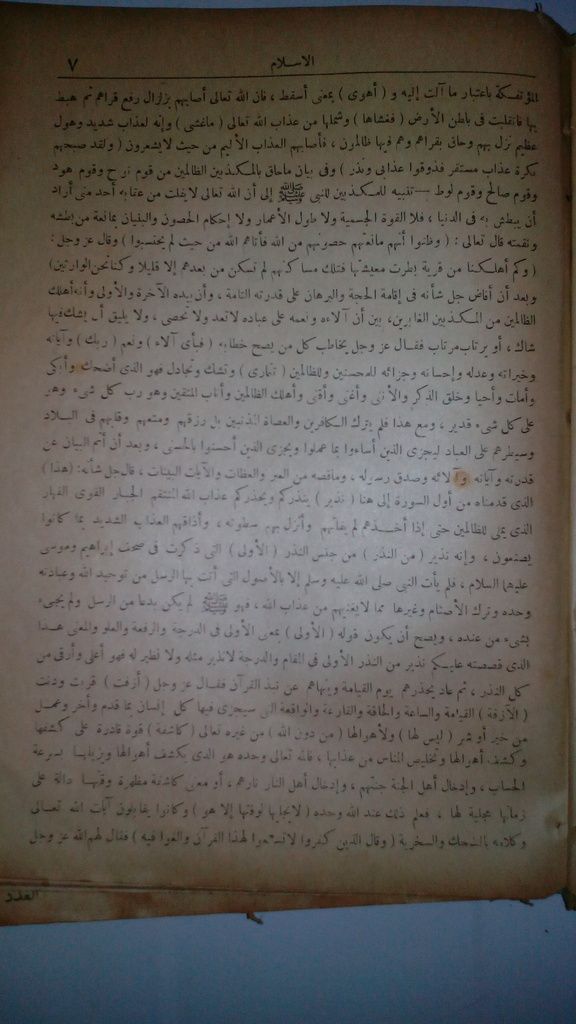 الاسلام
٧
المؤتفكة باعتبار ما آلت إليه و ( أهوى ) بمعنى أسقط ، فان الله تعالى أصابهم بزلزال رفع قراهم ثم هبط
بها فانقلبت فى باطن الأرض ( فغشاها ) وشملها من عذاب الله تعالى ( ماغشى ) وإنه لعذاب شديد وهول
عظيم نزل بهم وحاق بقراهم وهم فيها ظالمون ، فأصابهم العذاب الأليم من حيث لايشعرون ( ولقد صبحهم
بكرة عذاب مستقر فذوقوا عذابى ونذر ) وفى بيان ماحاق بالمكذبين الظالمين من قوم نوح وقوم هود
وقوم صالح وقوم لوط — تنبيه للمكذبين للنبى ﷺ إلى أن الله تعالى لايفلت من عقابه أحد متى أراد
أن يبطش به فى الدنيا ، فلا القوة الجسمية ولا طول الأعمار ولا إحكام الحصون والبنيان بمانعة من بطشه
ونقمته قال تعالى : ( وظنوا أنهم مانعتهم حصونهم من الله فأتاهم الله من حيث لم يحتسبوا ) وقال عز وجل :
( وكم أهلكنا من قرية بطرت معيشتها فتلك مساكنهم لم تسكن من بعدهم إلا قليلا وكنا نحن الوارثين )
وبعد أن أفاض جل شأنه فى إقامة الحجة والبرهان على قدرته التامة ، وأن بيده الآخرة والأولى وأنه أهلك
الظالمين من المكذبين الغابرين، بين أن آلاءه ونعمه على عباده لاتعد ولا تحصى ، ولا يليق أن يشك فيها
شاك، أو يرتاب مرتاب فقال عز وجل يخاطب كل من يصح خطابه ( فبأى آلاء ) ونعم ( ربك ) وآياته
وخيراته وعدله وإحسانه وجزائه للمحسنين وللظالمين ( تتمارى ) وتشك وتجادل فهو الذى أضحك وأبكى
وأمات وأحيا وخلق الذكر والأنثى وأغنى وأقنى وأهلك الظالمين وأثاب المتقين وهو رب كل شىء وهو
على كل شىء قدير ، ومع هذا فلم يترك الكافرين والعصاة المذنبين بل رزقهم ومتعهم وقلبهم فى البلاد
وسيطرهم على العباد ليجزى الذين أساءوا بما عملوا ويجزى الذين أحسنوا بالحسنى ، وبعد أن أتم البيان عن
قدرته وآياته وآلائه وصدق رسوله ، وماقصه من العبر والعظات والآيات البينات ، قال جل شأنه: (هذا )
الذى قدمناه من أول السورة إلى هنا ( نذير ) ينذركم ويحذركم عذاب الله المنتقم الجبار القوى القهار
الذى يملى للظالمين حتى إذا أخذهم لم يفلتهم وأنزل بهم سطوته ، وأذاقهم العذاب الشديد بما كانوا
يصنعون ، وإنه نذير ( من النذر ) من جنس النذر ( الأولى ) التى ذكرت فى صحف إبراهيم وموسى
عليهما السلام ، فلم يأت النبى صلى الله عليه وسلم إلا بالأصول التى أتت بها الرسل من توحيد الله وعبادته
وحده وترك الأصنام وغيرها مما لايغنيهم من عذاب الله ، فهو ﷺ لم يكن بدعا من الرسل ولم يجىء
بشىء من عنده ، ويصح أن يكون قوله ( الأولى ) بمعنى الأولى فى الدرجة والرفعة والعلو والمعنى هذا
الذى قصصته عليكم نذير من النذر الأولى فى المقام والدرجة لانذير مثله ولا نظير له فهو أعلى وأرقى من
كل النذر ، ثم عاد يحذرهم يوم القيامة وينهاهم عن نبذ القرآن فقال عز وجل ( أزفت ) قربت ودنت
( الآزفة ) القيامة والساعة والحاقة والقارعة والواقعة التى سيجزى فيها كل إنسان بما قدم وأخر وعمل
من خير أو شر ( ليس لها ) ولأهوالها ( من دون الله ) من غيره تعالى ( كاشفة ) قوة قادرة على كشفها
وكشف أهوالها وتخليص الناس من عذابها ، فالله تعالى وحده هو الذى يكشف أهوالها ويزيلها بسرعة
الحساب ، وإدخال أهل الجنة جنتهم ، وإدخال أهل النار نارهم ، أو معنى كاشفة مظهرة وقتها دالة على
زمانها مجلية لها ، فعلم ذلك عند الله وحده ( لايجليها لوقتها إلا هو ) وكانوا يقابلون آيات الله تعالى
وكلامه بالضحك والسخرية ( وقال الذين كفروا لاتسمعوا لهذا القرآن والغوا فيه ) فقال لهم الله عز وجل